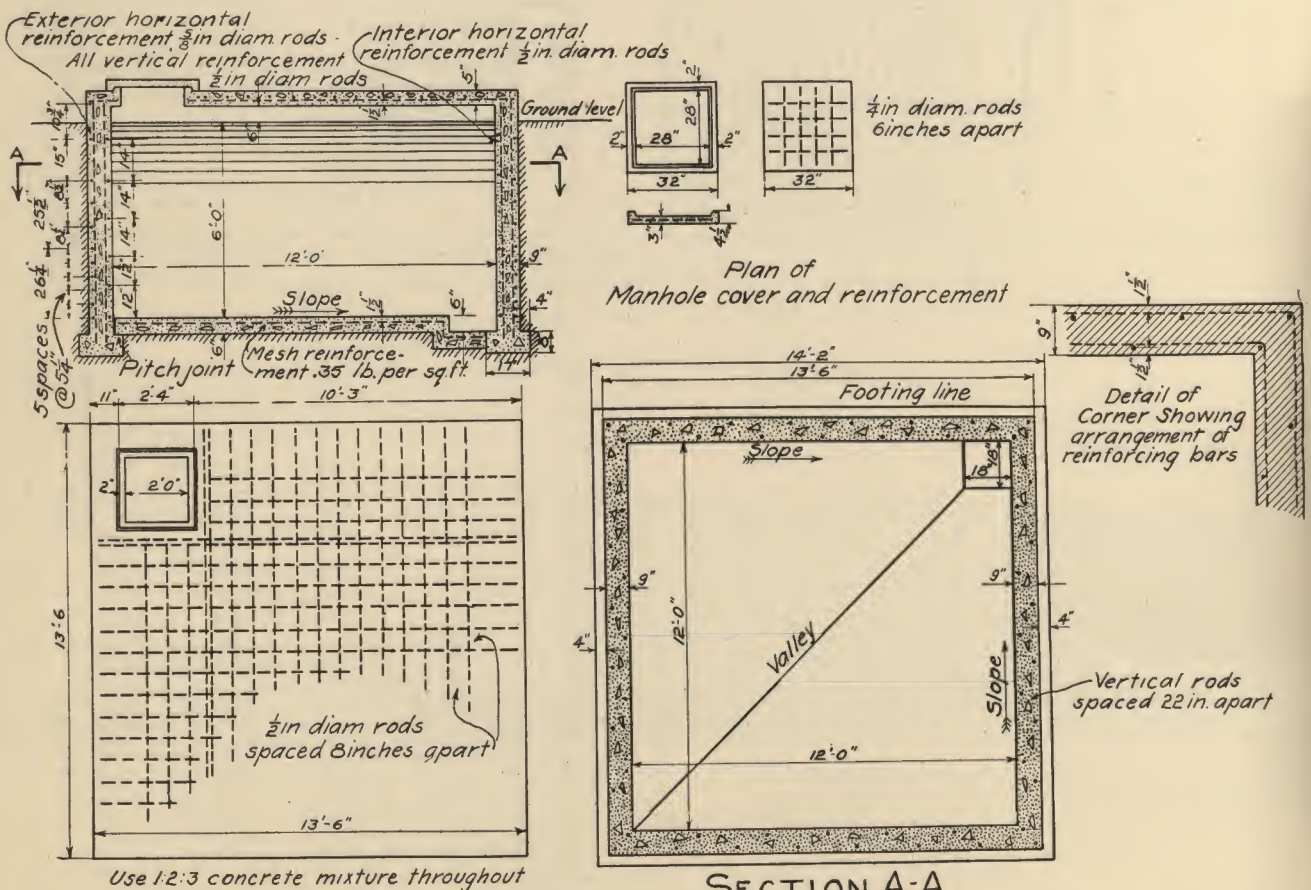 Exterior horizontal
reinforcement ⅝in diam. rods -
All vertical reinforcement
½in diam rods
Interior horizontal
reinforcement ½in. diam. rods
5"
1½"
Ground level
6"
10¾"
15"
8½"
25½"
8½"
26¼"
5 spaces
@5¼"
14"
14"
14"
12"
12"
6'-0"
12'-0"
9"
A
A
Slope
1½"
6"
4"
8"
6"
11"
Pitch joint
Mesh reinforce-
ment .35 lb. per sq.ft.
2"
28"
2"
28"
2"
32"
3"
4½"
32"
¼in diam. rods
6inches apart
Plan of
Manhole cover and reinforcement
1½"
9"
1½"
Detail of
Corner Showing
arrangement of
reinforcing bars
11"
2'-4"
10'-3"
2"
2'0"
13'-6
½in diam rods
spaced 8inches apart
13'-6"
Use 1:2:3 concrete mixture throughout
14'-2"
13'-6"
Footing line
Slope
18"
18"
9"
9"
4"
4"
12'-0"
Valley
Slope
12'-0"
Vertical rods
spaced 22 in. apart
SECTION A-A